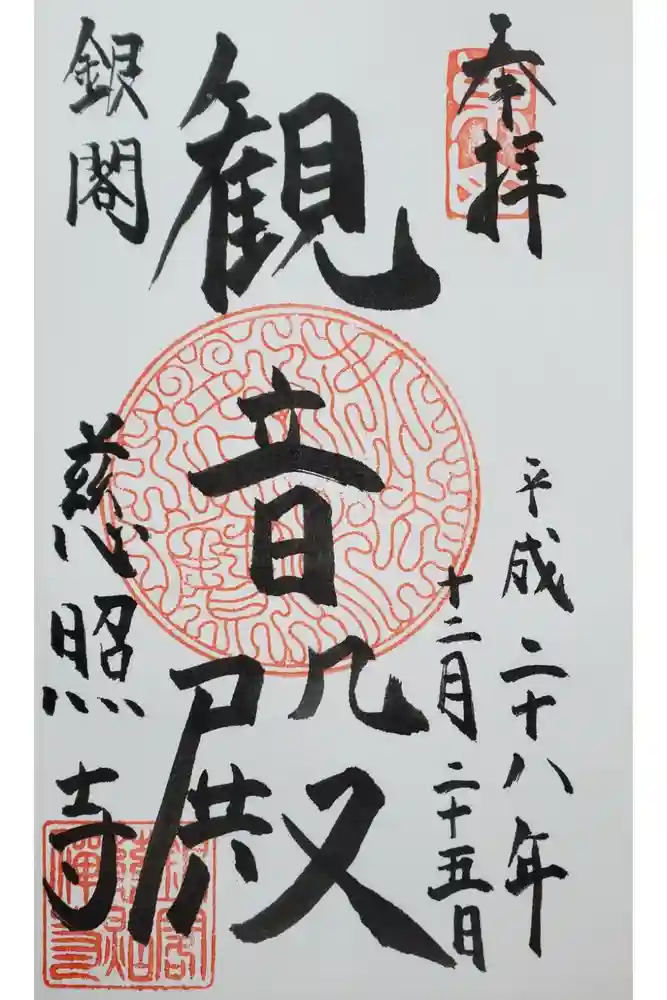 奉拝
平成二十八年
十二月二十五日
観音殿
銀閣
慈照寺